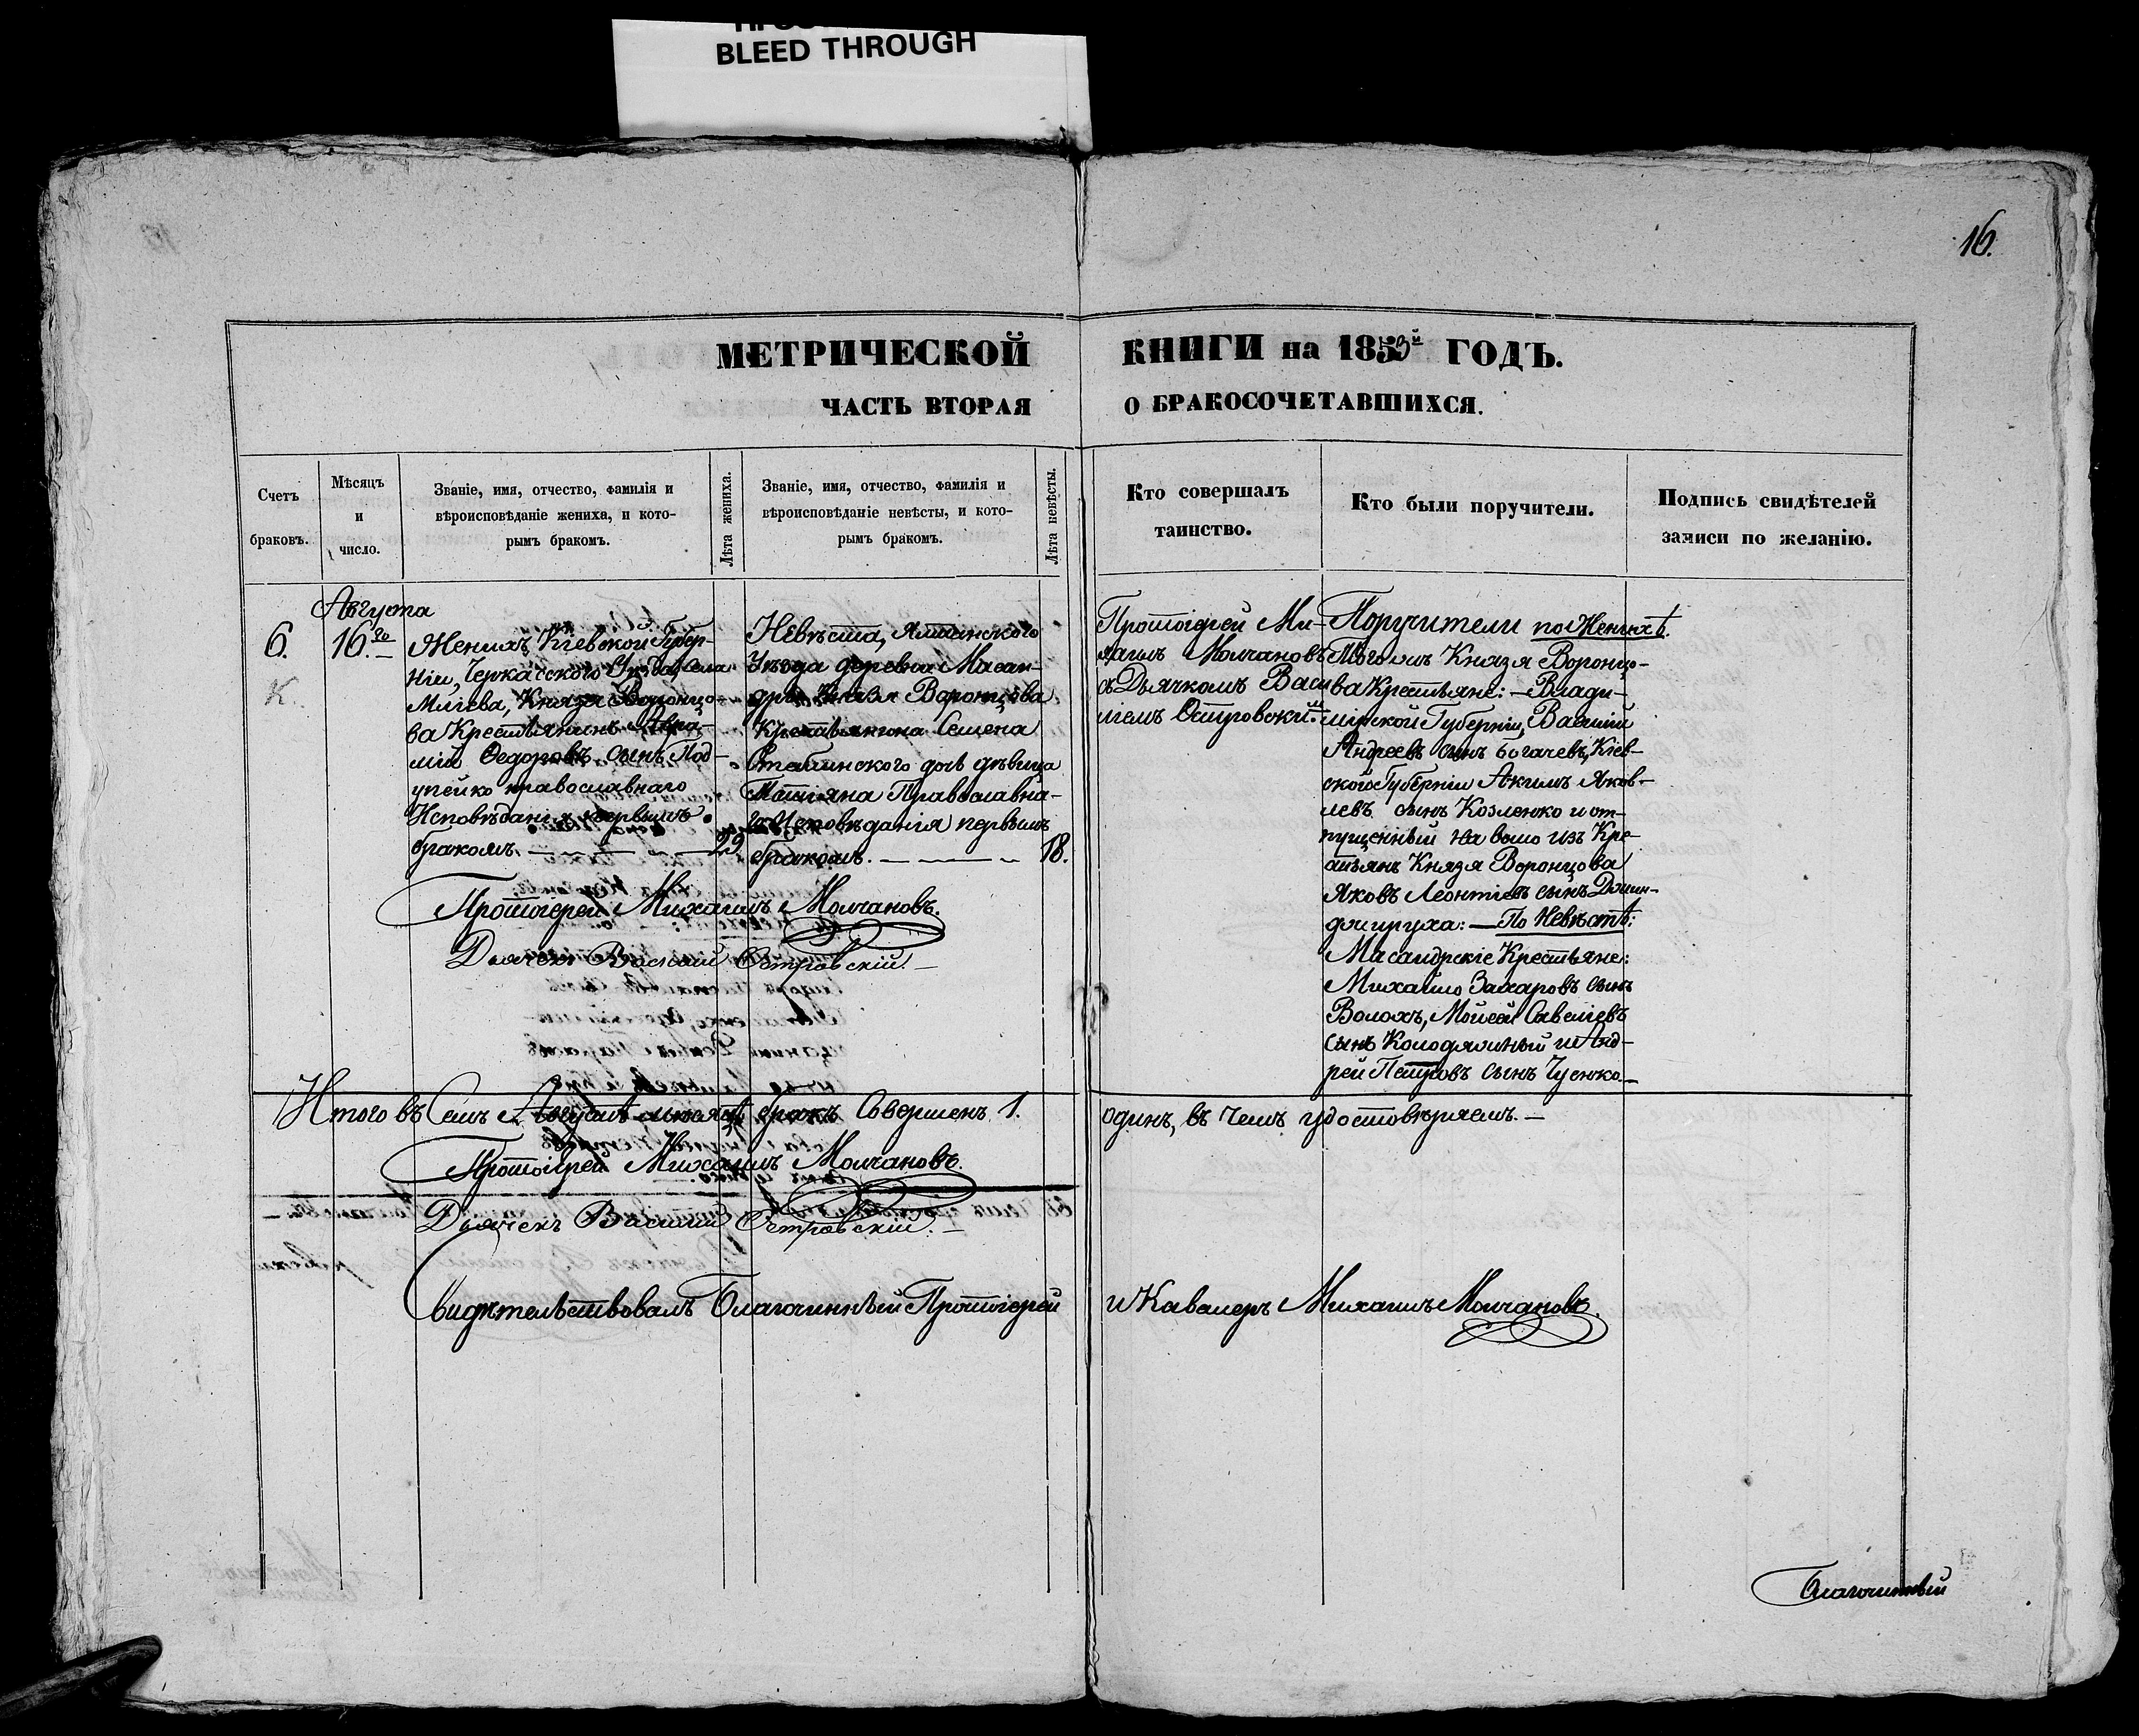 BLEED THROUGH
16.
МЕТРИЧЕСКОЙ КНИГИ на 1853й ГОДЪ.
ЧАСТЬ ВТОРАЯ О БРАКОСОЧЕТАВШИХСЯ.
Счетъ
браковъ.
Мѣсяцъ
и
число.
Званіе, имя, отчество, фамилія и
вѣроисповѣданіе жениха, и кото-
рымъ бракомъ.
Лѣта жениха.
Званіе, имя, отчество, фамилія и
вѣроисповѣданіе невѣсты, и кото-
рымъ бракомъ.
Лѣта невѣсты.
Кто совершалъ
таинство.
Кто были поручители.
Подпись свидѣтелей
записи по желанію.
Августа
6.
К.
16.го
Женихъ Кіевской Губер-
ніи, Черкасского Уѣзда, Села
Мліева, Князя Воронцо-
ва Крестьянинъ
Ѳедоровъ сынъ Под-
православнаго
Исповѣданія первымъ
бракомъ. 29
Невѣста, Ялтинского
Уѣзда деревни Масан-
дры Князя Воронцова
Крестьянина Семена
дочь дѣвица
Татіяна Православна-
го Исповѣданія первымъ
бракомъ. 18.
Протоіерей Михаилъ Молчановъ.
Дьячекъ Василій Островскій.
Протоіерей Ми-
хаилъ Молчановъ
съ Дьячкомъ Васи
ліемъ Островскимъ.
Поручители по Женихѣ.
Князя Воронцо-
ва Крестьяне: — Влади-
мірской Губерніи, Василій
Андреевъ сынъ Богачевъ, Кіев-
ской Губерніи Акимъ Яков-
левъ сынъ Козленко и от-
пущенный на волю изъ Кре-
стьянъ Князя Воронцова
Яковъ Леонтіевъ сынъ
— По Невѣстѣ:
Масандрскіе Крестьяне:
Михайло Захаровъ сынъ
Волохъ, Мойсей Савеліевъ
сынъ Колодяжный и Анд-
рей Петровъ сынъ
Итого въ Семъ Августѣ мѣсяцѣ бракъ Совершенъ 1. одинъ, въ чемъ удостовѣряемъ. —
Протоіерей Михаилъ Молчановъ.
Дьячекъ Василій Островскій. —
Свидѣтельствовалъ Благочинный Протоіерей и Кавалеръ Михаилъ Молчановъ.
Благочинный